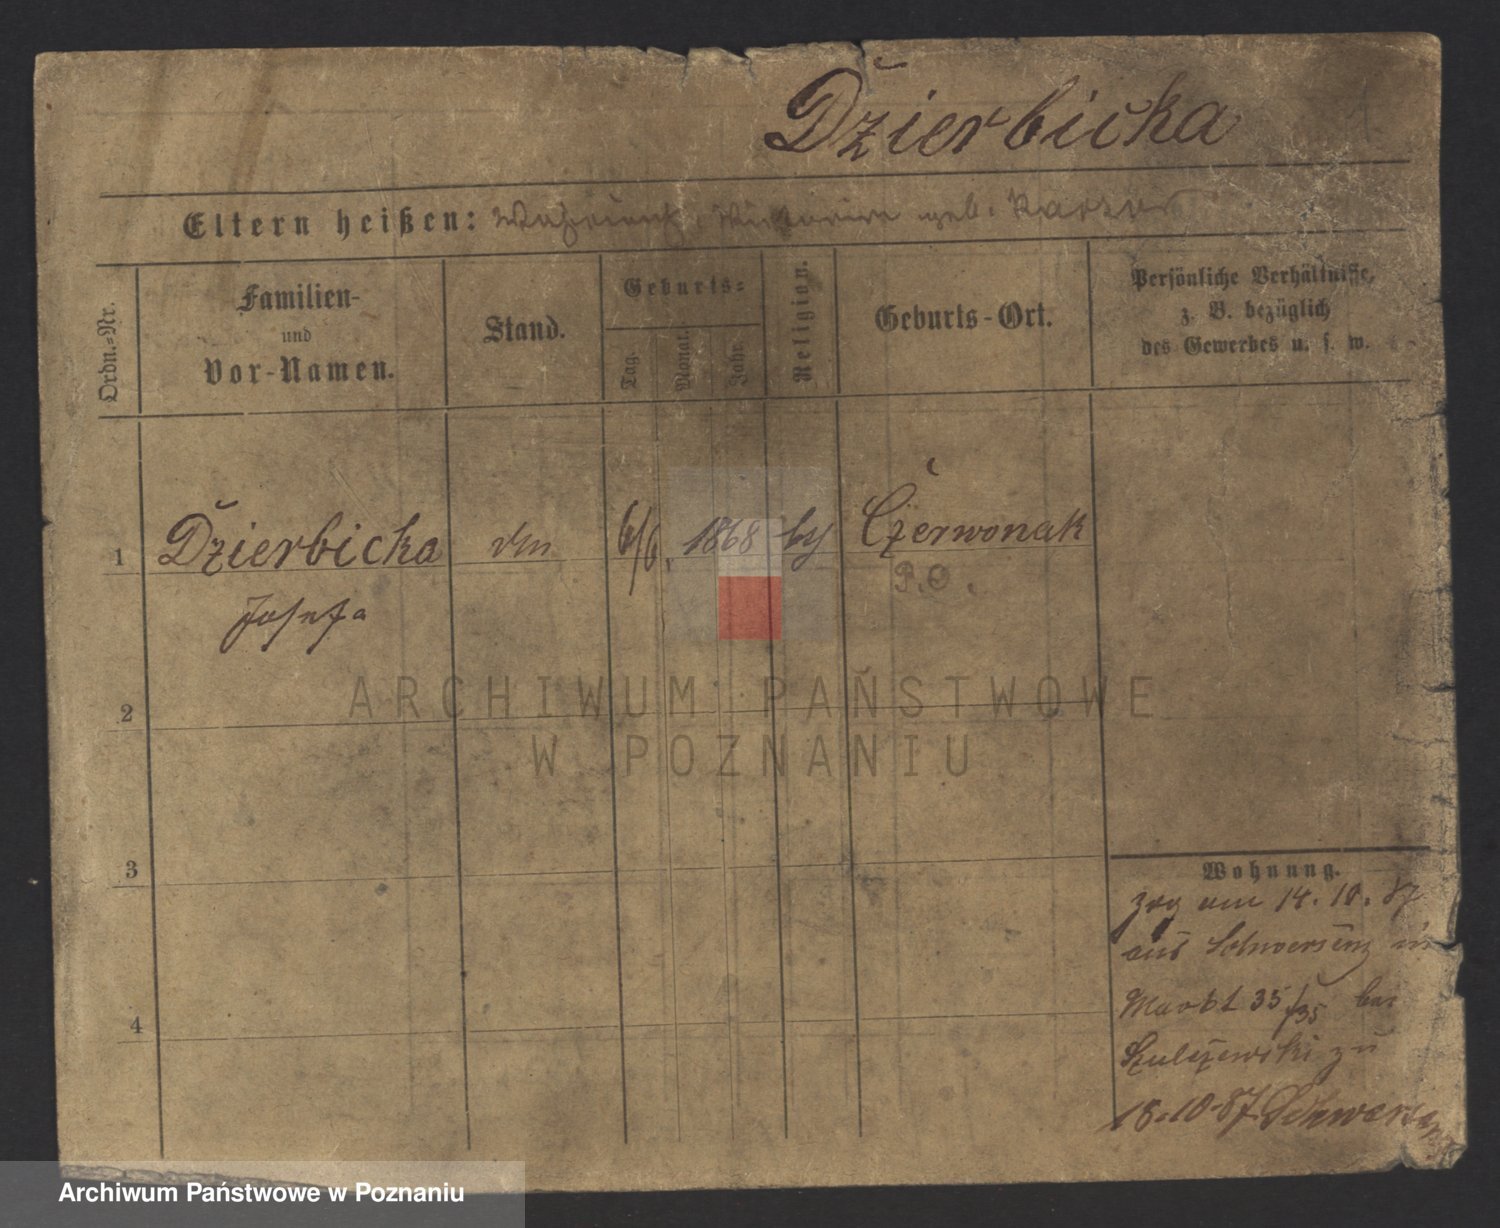 Dzierbicka
1.
Eltern heißen: geb.
Ordn.-Nr.
Familien-
und
Vor-Namen.
Stand.
Geburts=
Tag.
Monat.
Jahr.
Religion.
Geburts-Ort.
Persönliche Verhältnisse,
z. B. bezüglich
des Gewerbes u. s. w.
1 Dzierbicka 6/6. 1868 Czerwonak
Josefa P.O.
2
3
4
Wohnung.
zog am 14.10.87
aus Schwersenz in
Markt 35/35 bei
zu
18.10.87. Schwersenz
ARCHIWUM PAŃSTWOWE
W POZNANIU
Archiwum Państwowe w Poznaniu